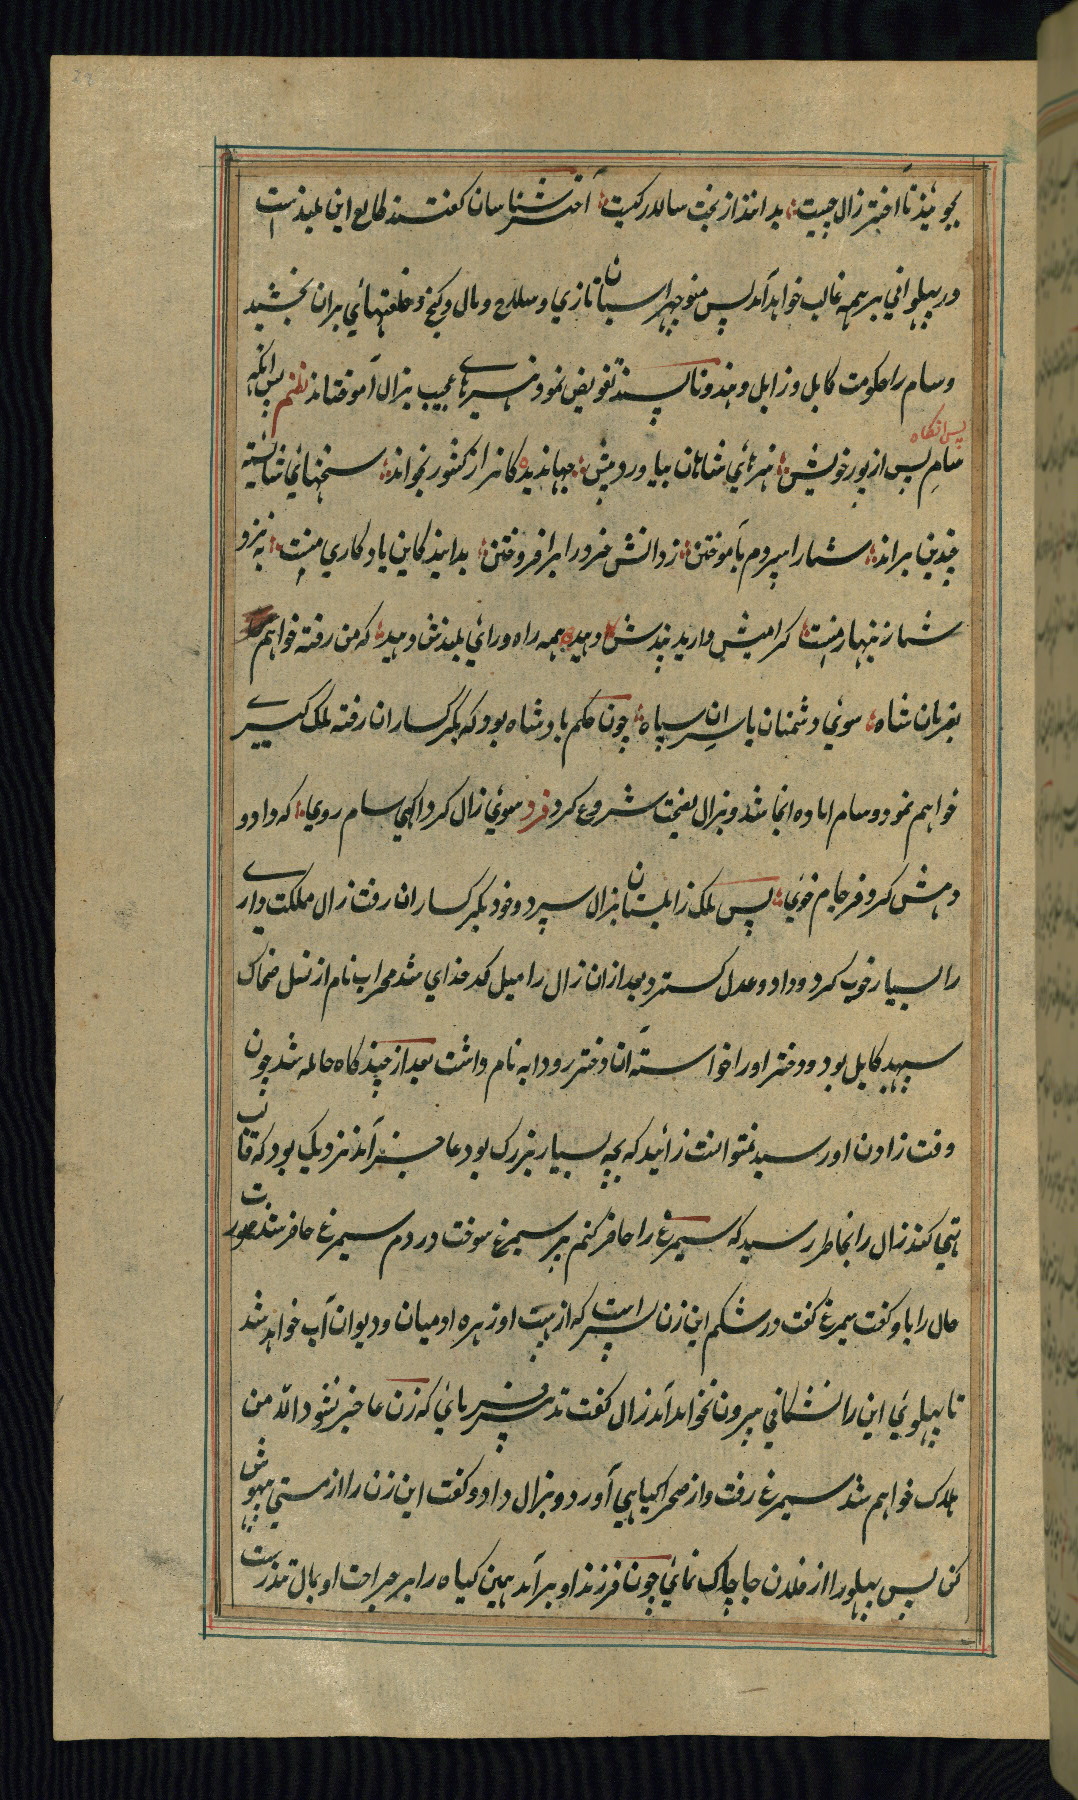 بجوئید تا اختر زال چیست بدانند از بخت سالار کیست اختر شناسان گفتند طالع این بلندست
در پهلوانی بر همه غالب خواهد آمد پس منوچهر اسپان تازی و سلاح و مال و گنج و خلعتهای بران بخشید
و سام را حکومت کابل و زابل و هند و تا سند تفویض نمود هنرهای عجیب بزال آموختند نظم پس انگه
پس انگاه
سام پس از پور خویش هنرهای شاهان بیاورد پیش جهاندیدگانرا ز کشور بخواند سخنهای شایسته
چندین براند شما را سپردم بآموختن ز دانش خرد را برافروختن بدانید کاین یادگار منست به نزد
شما زینهار منست گرامیش دارید و پندش دهید همه راه و رای بلندش دهید که من رفته خواهم
بفرمان شاه سوی دشمنان با سران سپاه چون حکم بادشاه بود که بگرگساران رفته ملک گیری
خواهم نمود و سام اماده انجا شد و بزال نصیحت شروع کرد فرد سوی زال کرد انگهی سام روی که داد و
دهش گیر و فرجام جوی پس ملک زابلستان بزال سپرد و خود بگرگساران رفت زال مملکت داری
را بسیار خوب کرد و داد و عدل گسترد بعد ازان زال را میل کدخدای شد محراب نام از نسل ضحاک
سپهبد کابل بود و دختر او را خواسته آن دختر رودابه نام داشت بعد از چند گاه حامله شد چون
وقت زادن او رسید نتوانست زائید که بچه بسیار بزرگ بود عاجز آمد نزدیک بود که قالب
تهی کند زال را بخاطر رسید که سیمرغ را حاضر کنم پر سیمرغ سوخت در دم سیمرغ حاضر شد صورت
حال را باو گفت سیمرغ گفت در شکم این زن پسر است که از هیبت او زهره ادمیان و دیوان آب خواهد شد
تا پهلوی این را نشگافی بیرون نخواهد آمد زال گفت تدبیر فرمای که زن عاجز نشود والا من
هلاک خواهم شد سیمرغ رفت و از صحرا گیاهی آورد و بزال داد و گفت این زن را از مستی بیهوش
کن پس پهلو را از فلدن جا چاک نمائی چون فرزند او برآید همین گیاه را بر جراحت او بمال تندرست